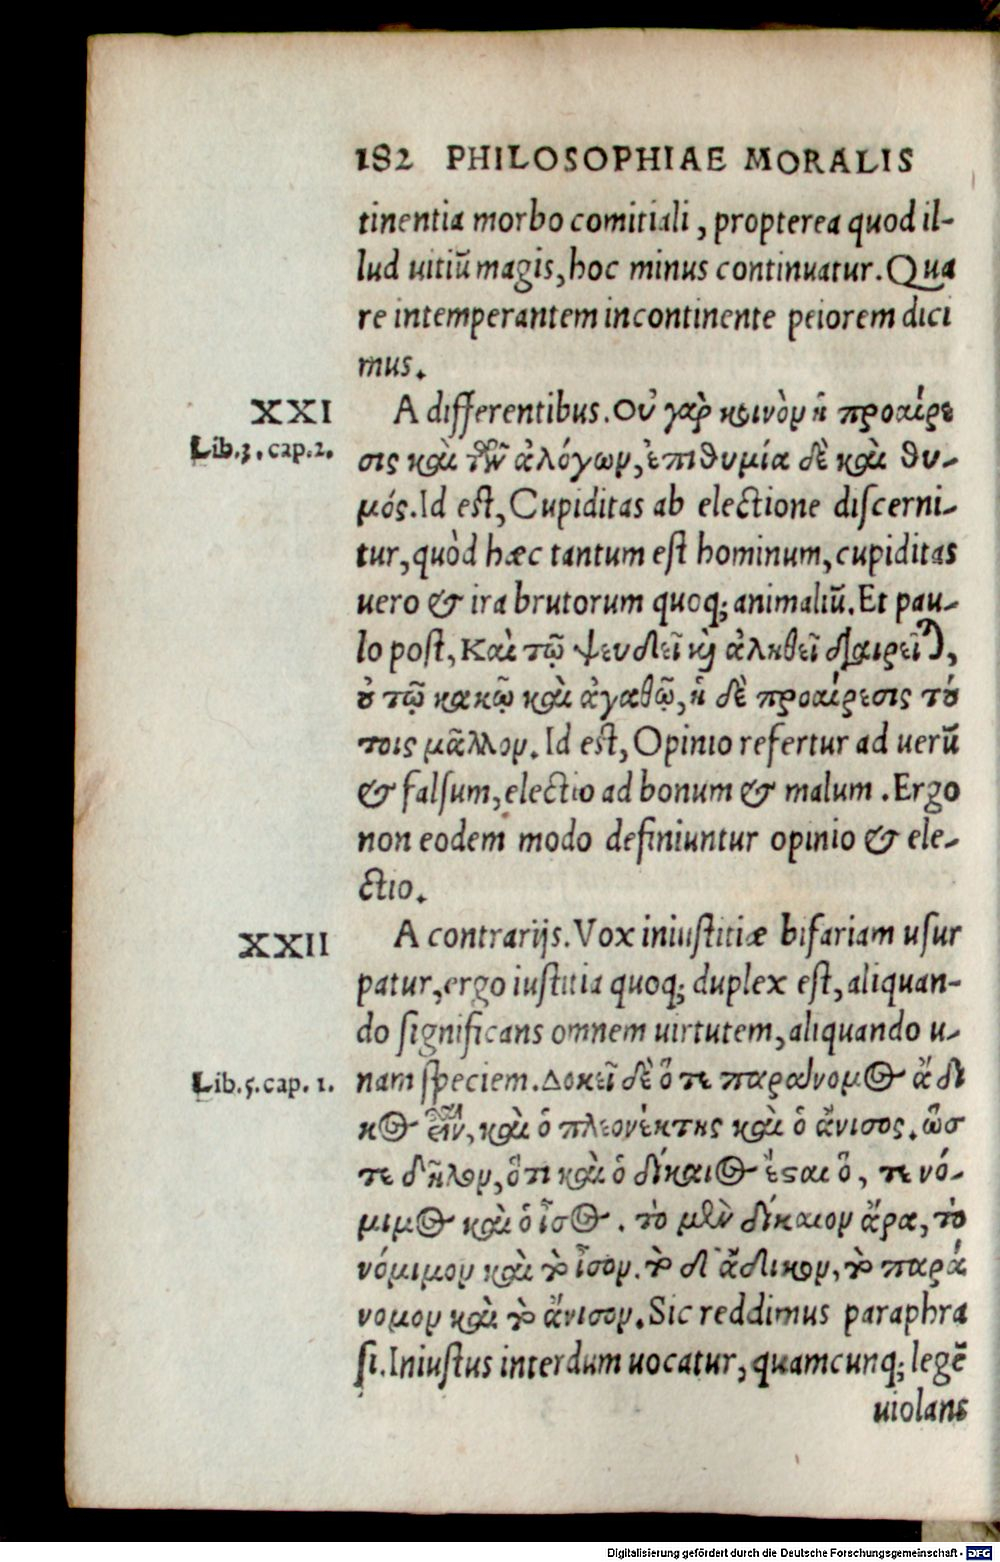 182 PHILOSOPHIAE MORALIS
tinentia morbo comitiali, propterea quod il-
lud uitiũ magis, hoc minus continuatur. Qua
re intemperantem incontinente peiorem dici
mus.
XXI
A differentibus. Οὐ γὰρ κοινὸν ἡ προαίρε
Lib.3.cap.2.
σις καὶ τῶν ἀλόγων, ἐπιθυμία δὲ καὶ θυ-
μός. Id est, Cupiditas ab electione discerni-
tur, quòd hæc tantum est hominum, cupiditas
uero & ira brutorum quoq; animaliũ. Et pau-
lo post, Καὶ τῷ ψευδεῖ κỳ ἀληθεῖ διαιρεῖται,
οὐ τῷ κακῷ καὶ ἀγαθῷ, ἡ δὲ προαίρεσις τού
τοις μᾶλλον. Id est, Opinio refertur ad uerũ
& falsum, electio ad bonum & malum. Ergo
non eodem modo definiuntur opinio & ele-
ctio.
XXII
A contrarijs. Vox iniustitiæ bifariam usur
patur, ergo iustitia quoq; duplex est, aliquan-
do significans omnem uirtutem, aliquando u-
Lib.5.cap. 1.
nam speciem. Δοκεῖ δὲ ὅ τε παράνομος ἄδι
κος εἶναι, καὶ ὁ πλεονέκτης καὶ ὁ ἄνισος. ὥσ
τε δῆλον, ὅτι καὶ ὁ δίκαιος ἔσαι ὅ, τε νό-
μιμος καὶ ὁ ἶσος. τὸ μὲν δίκαιον ἄρα, τὸ
νόμιμον καὶ τὸ ἶσον. τὸ δ' ἄδικον, τὸ παρά
νομον καὶ τὸ ἄνισον. Sic reddimus paraphra
si. Iniustus interdum uocatur, quamcunq; legẽ
uiolans
Digitalisierung gefördert durch die Deutsche Forschungsgemeinschaft - DFG